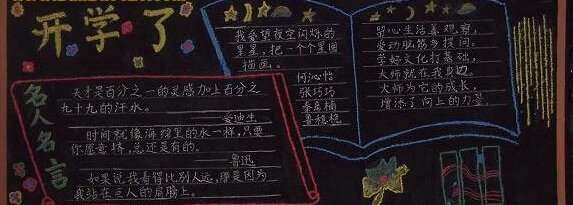 开学了
名人名言
天才是百分之一的灵感加上百分之
九十九的汗水。
——爱迪生
时间就像海绵里的水一样，只要
你愿意挤，总还是有的。
——鲁迅
如果说我看得比别人远，那是因为
我站在巨人的肩膀上。
我希望夜空闪烁的
星星，把一个个星图
描画。
何沁怡
张巧巧
秦嘉楠
鲁栊棍
留心生活善观察，
爱动脑筋多提问。
学好文化打基础，
大师就在我身边。
大师为它的成长，
增添了向上的力量。